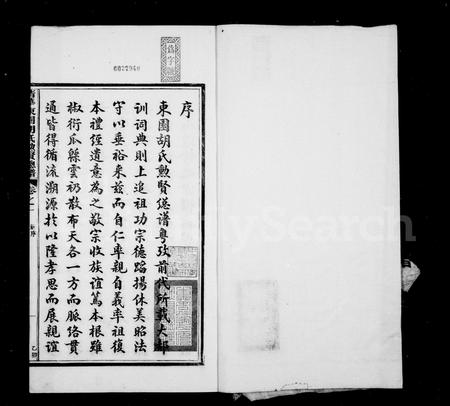 序
東園胡氏勲賢總譜粤攷前代所載大都
訓詞典則上追祖功宗德蹈揚休美昭法
守以垂裕來兹而自仁率親自義率祖復
本禮經遺意為之敬宗收族誼篤本根雖
椒衍瓜緜雲礽散布天各一方而脈絡貫
通皆得循流溯源於以隆孝思而展親誼
卷之一
序
乙卯
FamilySearch